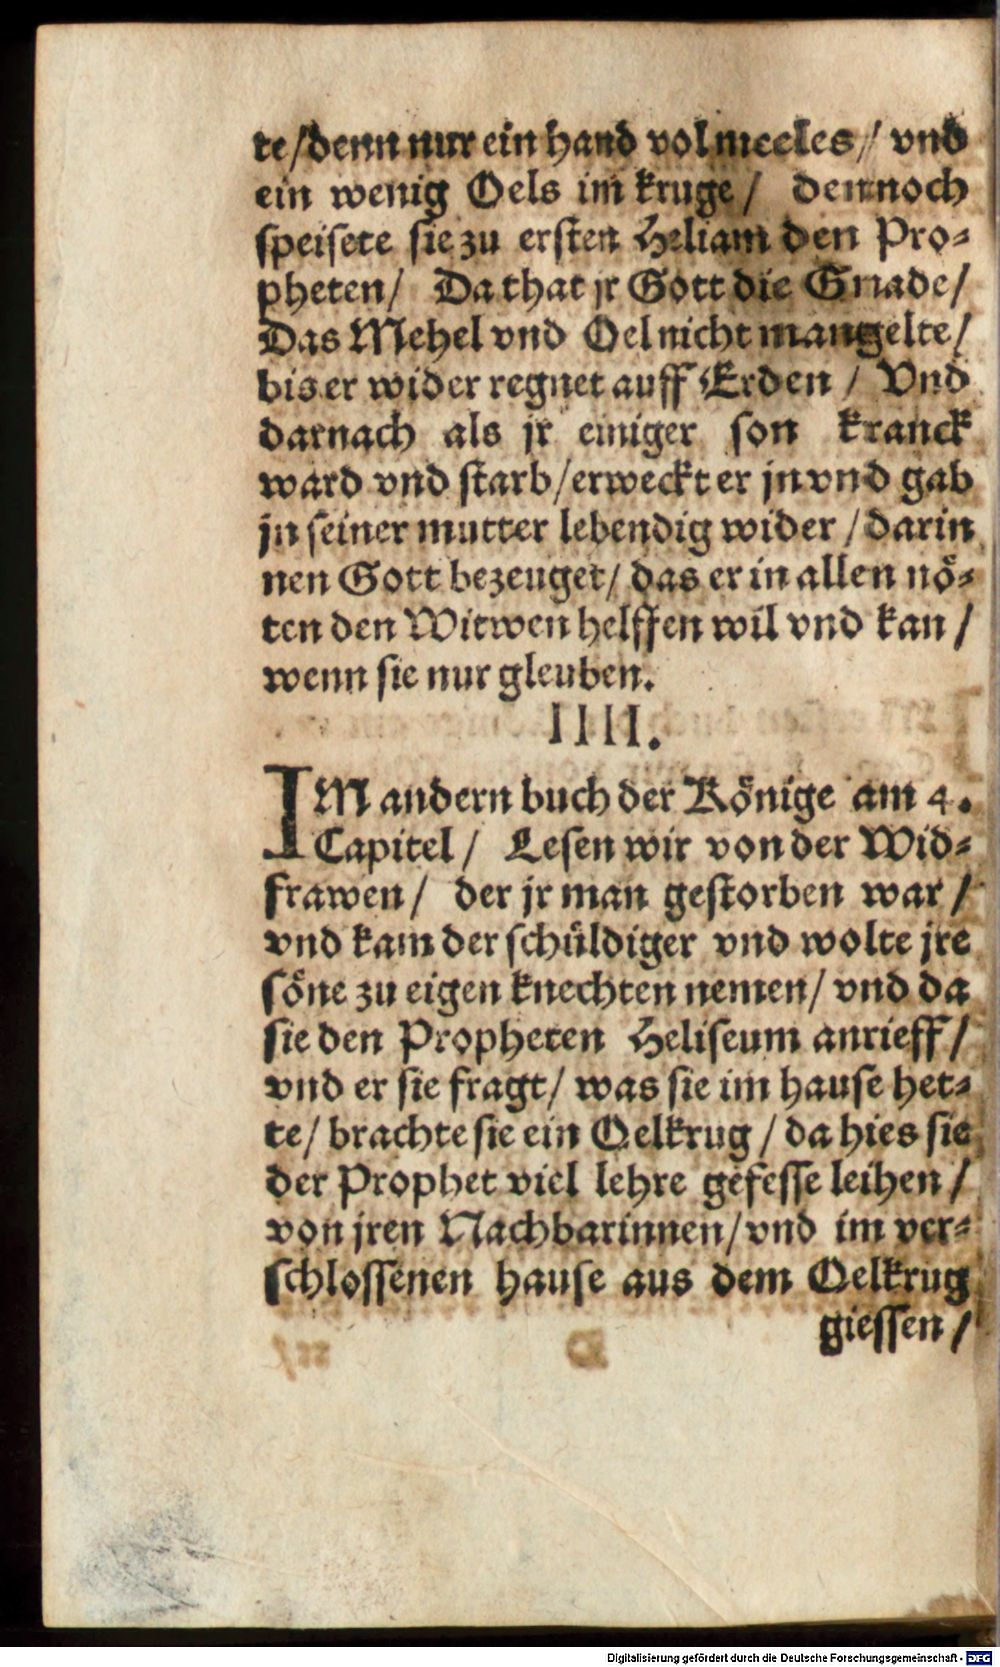 te/denn nur ein hand vol meeles/ vnd
ein wenig Oels im kruge/ dennoch
speisete sie zu ersten Heliam den Pro-
pheten/ Da that jr Gott die Gnade/
Das Mehel vnd Oel nicht mangelte/
bis er wider regnet auff Erden / Vnd
darnach als jr einiger son kranck
ward vnd starb/erweckt er jn vnd gab
jn seiner mutter lebendig wider /darin
nen Gott bezeuget/ das er in allen nö-
ten den Witwen helffen wil vnd kan /
wenn sie nur gleuben.
IIII.
IM andern buch der Könige am 4.
Capitel/ Lesen wir von der Wid-
frawen/ der jr man gestorben war /
vnd kam der schüldiger vnd wolte jre
söne zu eigen knechten nemen/ vnd da
sie den Propheten Heliseum anrieff/
vnd er sie fragt/ was sie im hause het-
te/ brachte sie ein Oelkrug /da hies sie
der Prophet viel lehre gefesse leihen /
von jren Nachbarinnen/vnd im ver-
schlossenen hause aus dem Oelkrug
giessen /
Digitalisierung gefördert durch die Deutsche Forschungsgemeinschaft - DFG